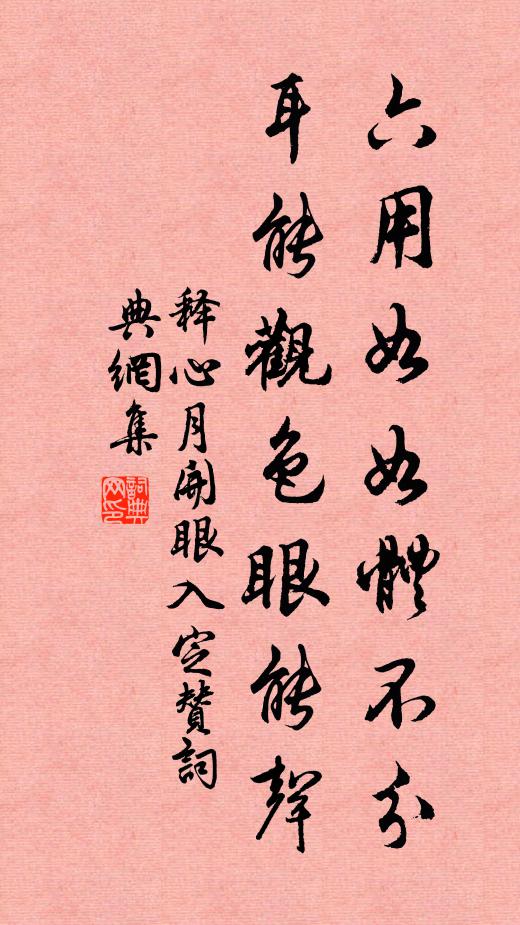 六用如如體不分
耳能觀色眼能聲
释心月開眼入定贊詞
典網集
詞典网印